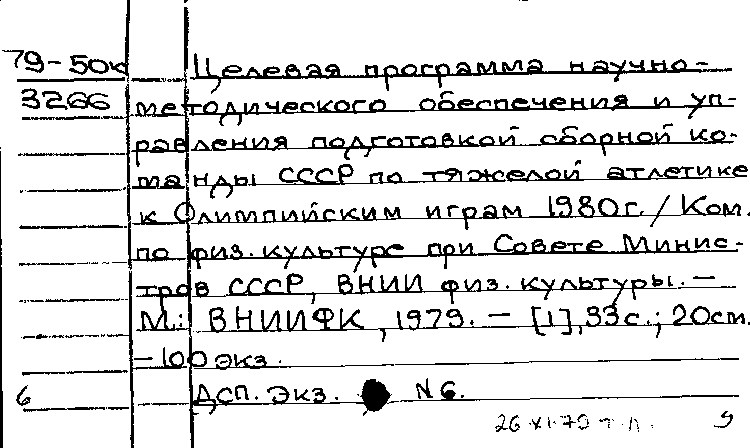 79-50к Целевая программа научно-
3266 методического обеспечения и уп-
равления подготовкой сборной ко-
манды СССР по тяжелой атлетике
к Олимпийским играм 1980г. / Ком.
по физ. культуре при Совете Минис-
тров СССР, ВНИИ физ. культуры. —
М.: ВНИИФК, 1979. — [1], 33с.; 20см.
— 100 экз.
6 Дсп. Экз. N 6.
26 XI-79 т.л. 9